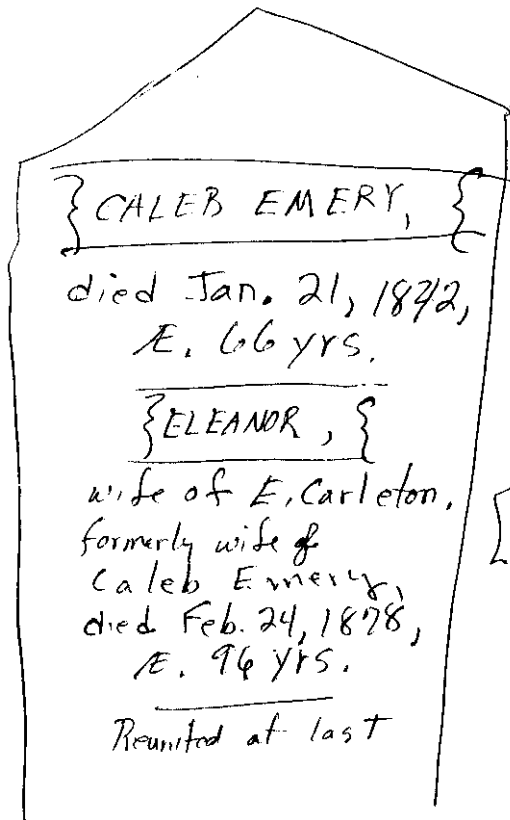 CALEB EMERY,
died Jan. 21, 1842,
Æ. 66 yrs.
ELEANOR,
wife of E. Carleton,
formerly wife of
Caleb Emery,
died Feb. 24, 1878,
Æ. 96 yrs.
Reunited at last